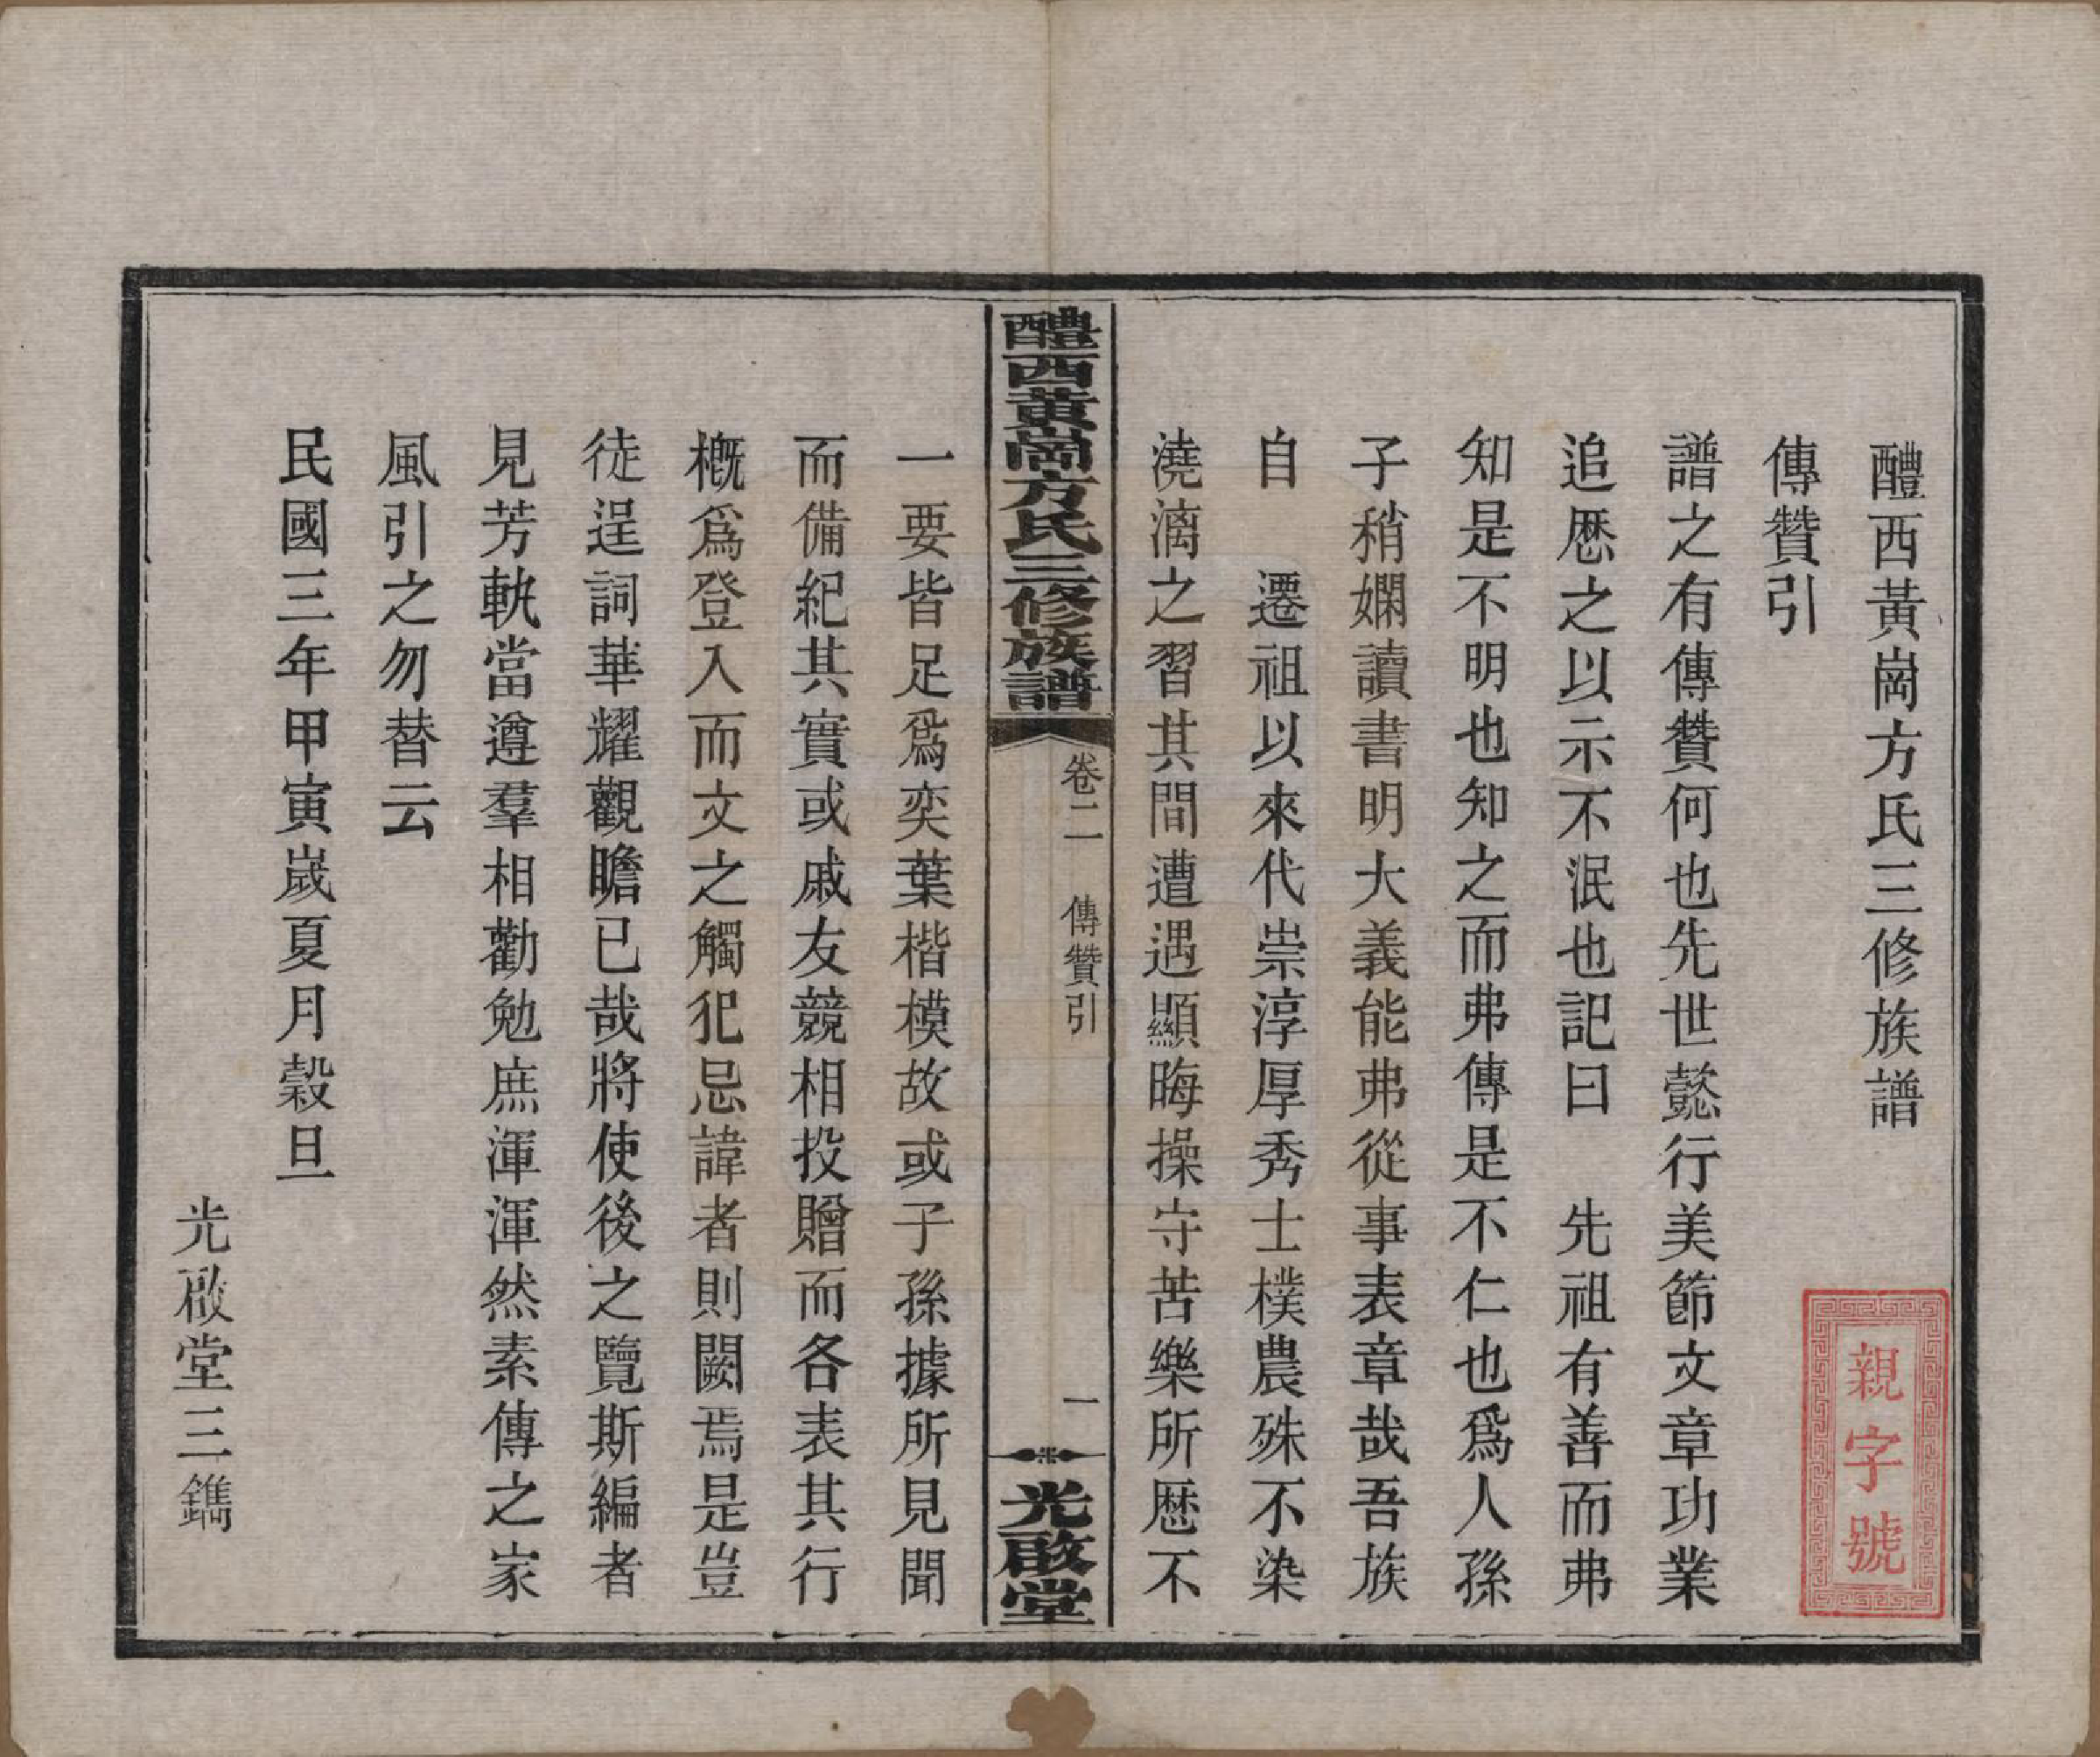 醴西黃崗方氏三修族譜
傳贊引
譜之有傳贊何也先世懿行美節文章功業
追歷之以示不泯也記曰　先祖有善而弗
知是不明也知之而弗傳是不仁也爲人孫
子稍嫻讀書明大義能弗從事表章哉吾族
自　遷祖以來代崇淳厚秀士樸農殊不染
澆漓之習其間遭遇顯晦操守苦樂所歷不
親字號
醴西黃崗方氏三修族譜
卷二　傳贊引
一
光啟堂
一要皆足爲奕葉楷模故或子孫據所見聞
而備紀其實或戚友競相投贈而各表其行
概爲登入而文之觸犯忌諱者則闕焉是豈
徒逞詞華耀觀瞻已哉將使後之覽斯編者
見芳軌當遵羣相勸勉庶渾渾然素傳之家
風引之勿替云
民國三年甲寅歲夏月穀旦
光啟堂三鐫